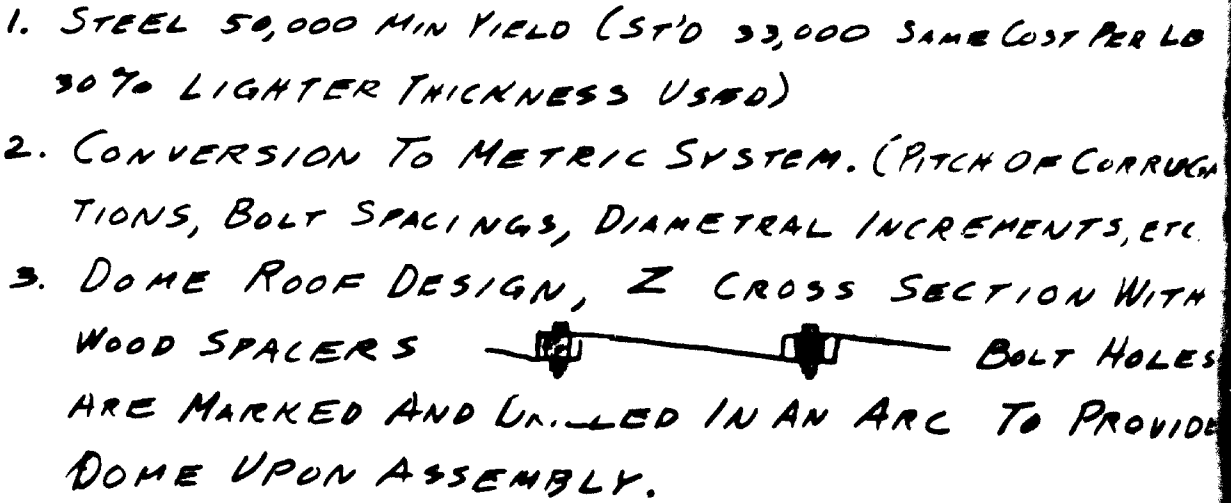 1. STEEL 50,000 MIN YIELD (ST'D 33,000 SAME COST PER LB
30% LIGHTER THICKNESS USED)
2. CONVERSION TO METRIC SYSTEM. (PITCH OF CORRUGA
TIONS, BOLT SPACINGS, DIAMETRAL INCREMENTS, ETC.
3. DOME ROOF DESIGN, Z CROSS SECTION WITH
WOOD SPACERS BOLT HOLES
ARE MARKED AND IN AN ARC TO PROVIDE
DOME UPON ASSEMBLY.